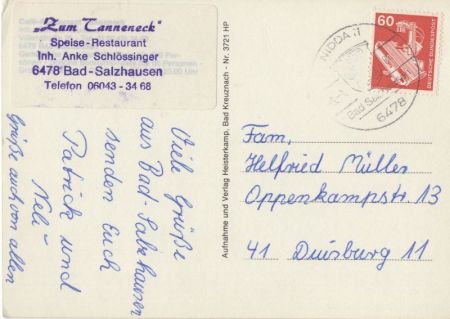 „Zum Tanneneck"
Speise-Restaurant
Inh. Anke Schlössinger
6478 Bad-Salzhausen
Telefon 06043-34 68
Viele Grüße
aus Bad-Salzhausen
senden Euch
Patrick und
Neli
Grüße auch von allen
Aufnahme und Verlag Heisterkamp, Bad Kreuznach - Nr. 3721 HP
NIDDA 11
Bad Salzhausen
6478
60
DEUTSCHE BUNDESPOST
Fam,
Helfried Müller
Oppenkampstr 13
41 Duisburg 11